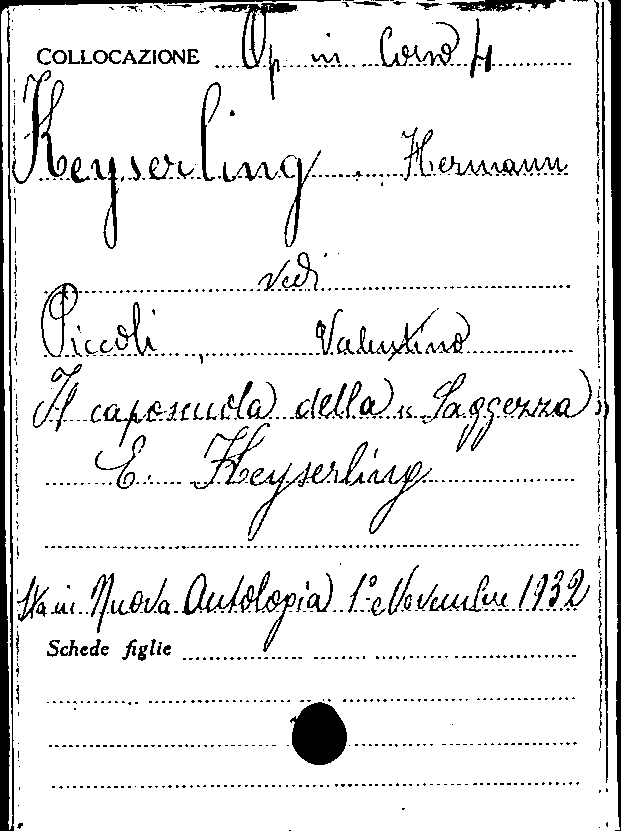 COLLOCAZIONE Op in Corso 4
Keyserling, Hermann
vedi
Piccoli, Valentino
Il caposcuola della « Saggezza »
E. Keyserling
Sta in Nuova Antologia 1° Novembre 1932
Schede figlie